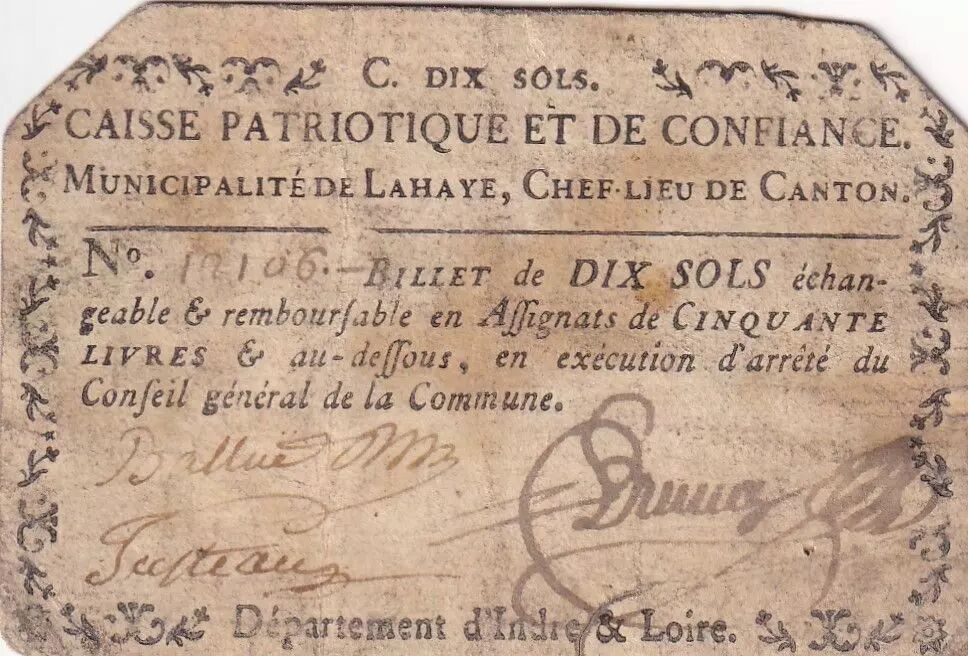 C. DIX SOLS.
CAISSE PATRIOTIQUE ET DE CONFIANCE.
MUNICIPALITÉ DE LAHAYE, CHEF-LIEU DE CANTON.
No. 12106.- BILLET de DIX SOLS échan-
geable & rembourſable en Aſſignats de CINQUANTE
LIVRES & au-deſſous, en exécution d'arrêté du
Conſeil général de la Commune.
Ballue
Département d'Indre & Loire.